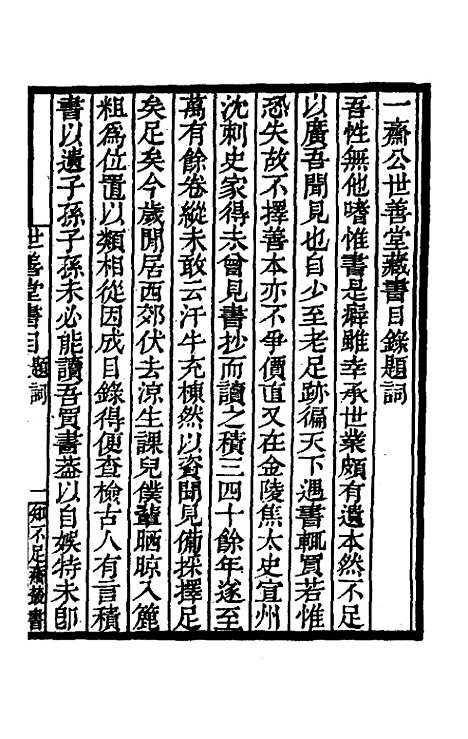 一齋公世善堂藏書目錄題詞
吾性無他嗜惟書是癖雖幸承世業頗有遺本然不足
以廣吾聞見也自少至老足跡徧天下遇書輒買若惟
恐失故不擇善本亦不爭價直又在金陵焦太史宣州
沈刺史家得未曾見書抄而讀之積三四十餘年遂至
萬有餘卷縱未敢云汗牛充棟然以資聞見備採擇足
矣足矣今歲閒居西郊伏去涼生課兒僕輩晒晾入簏
粗為位置以類相從因成目錄得便查檢古人有言積
書以遺子孫子孫未必能讀吾買書葢以自娛特未卽
世善堂書目題詞
一
知不足齋叢書